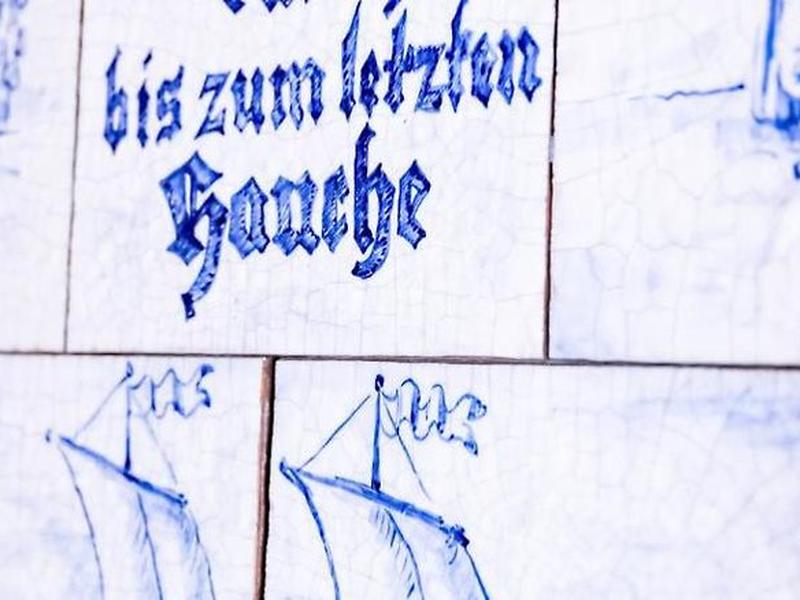 bis zum letzten
Hauche